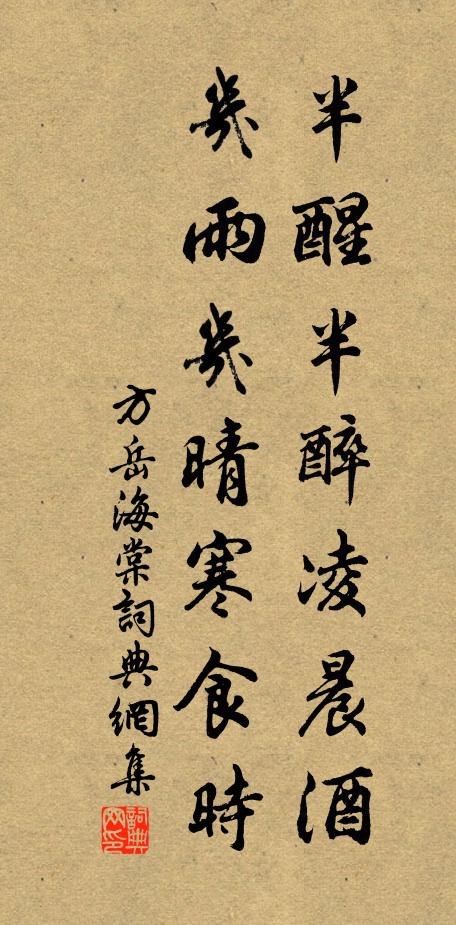 半醒半醉凌晨酒
幾雨幾晴寒食時
方岳海棠詞典網集
詞典網印